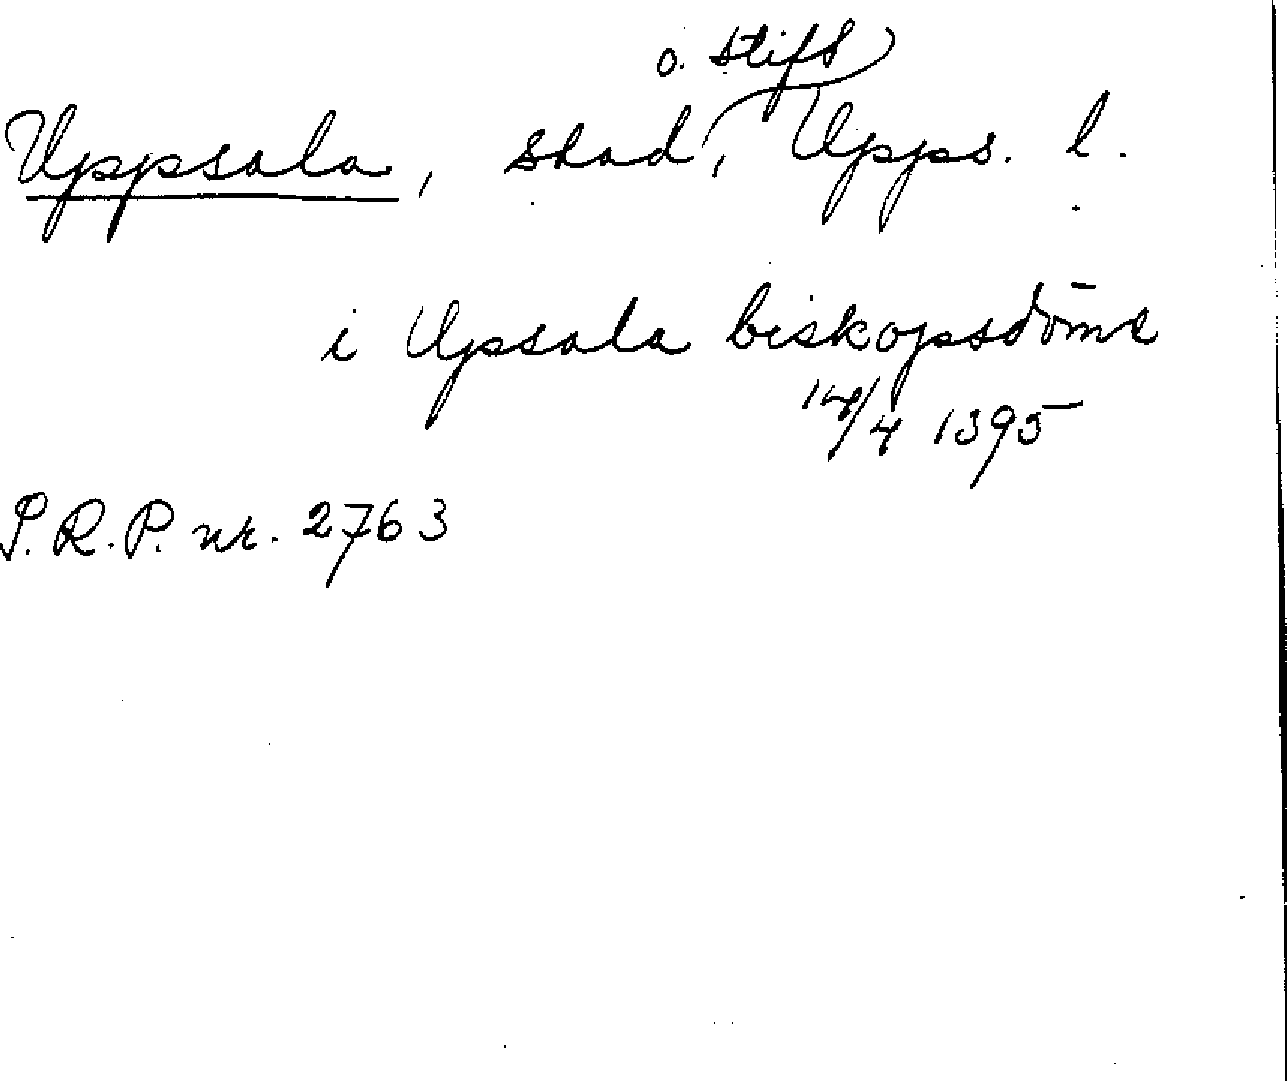 Uppsala, stad o. stift, Upps. l.
i Upsala biskopsdōme
14/4 1395
S.R.P. nr. 2763